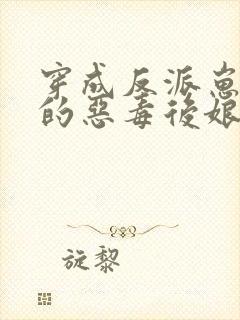 穿成反派崽
的惡毒後娘
旋黎